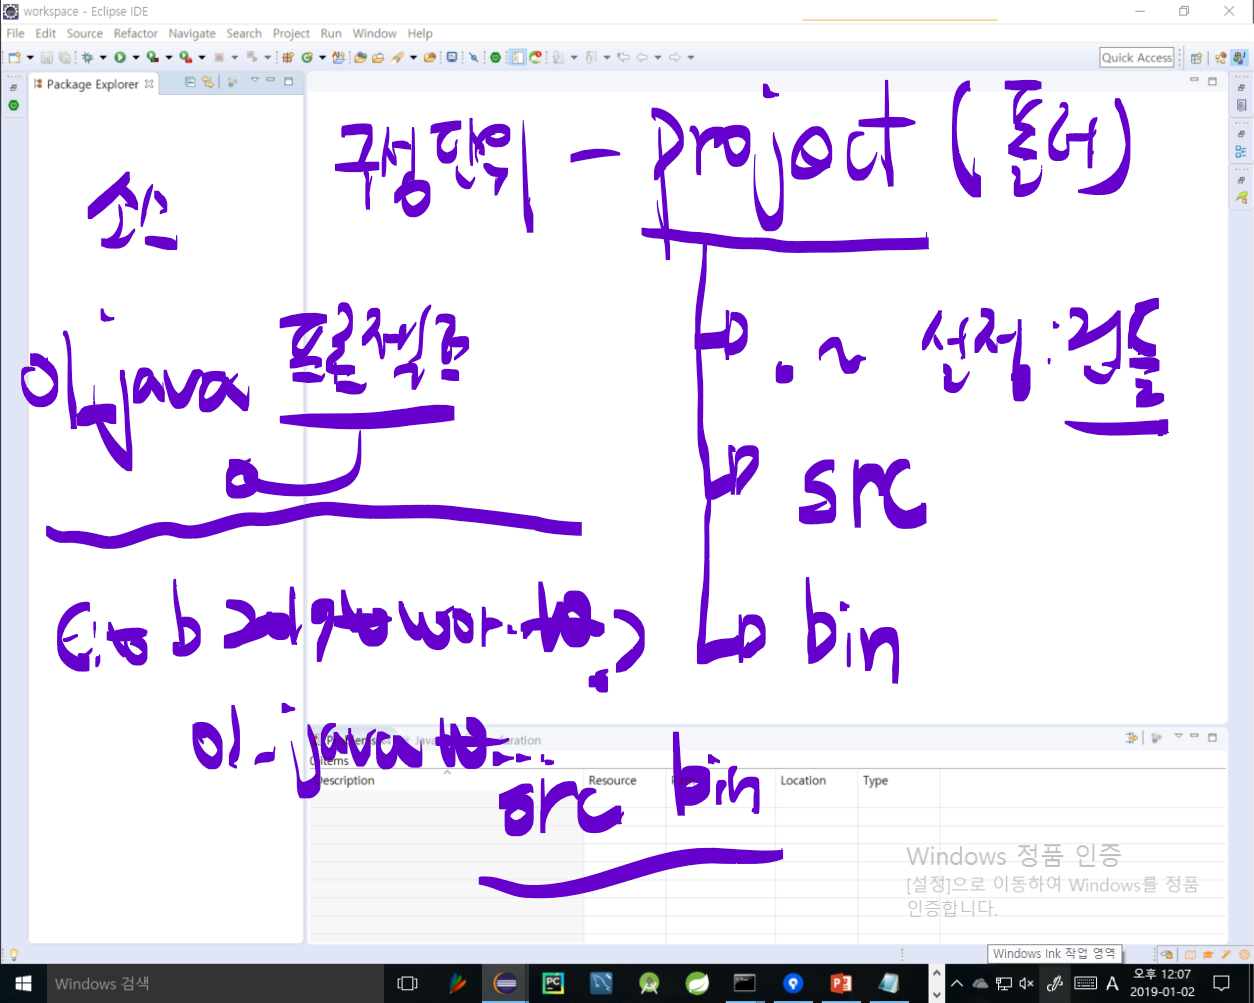 workspace - Eclipse IDE
File Edit Source Refactor Navigate Search Project Run Window Help
Quick Access
Package Explorer
구성단위 - project (폴더)
소스
01_java 프로젝트
. ~ 설정·검돌
src
bin
01-java
src bin
0 items
Description Resource Location Type
Windows 정품 인증
[설정]으로 이동하여 Windows를 정품
인증합니다.
Windows Ink 작업 영역
Windows 검색
A 오후 12:07
2019-01-02